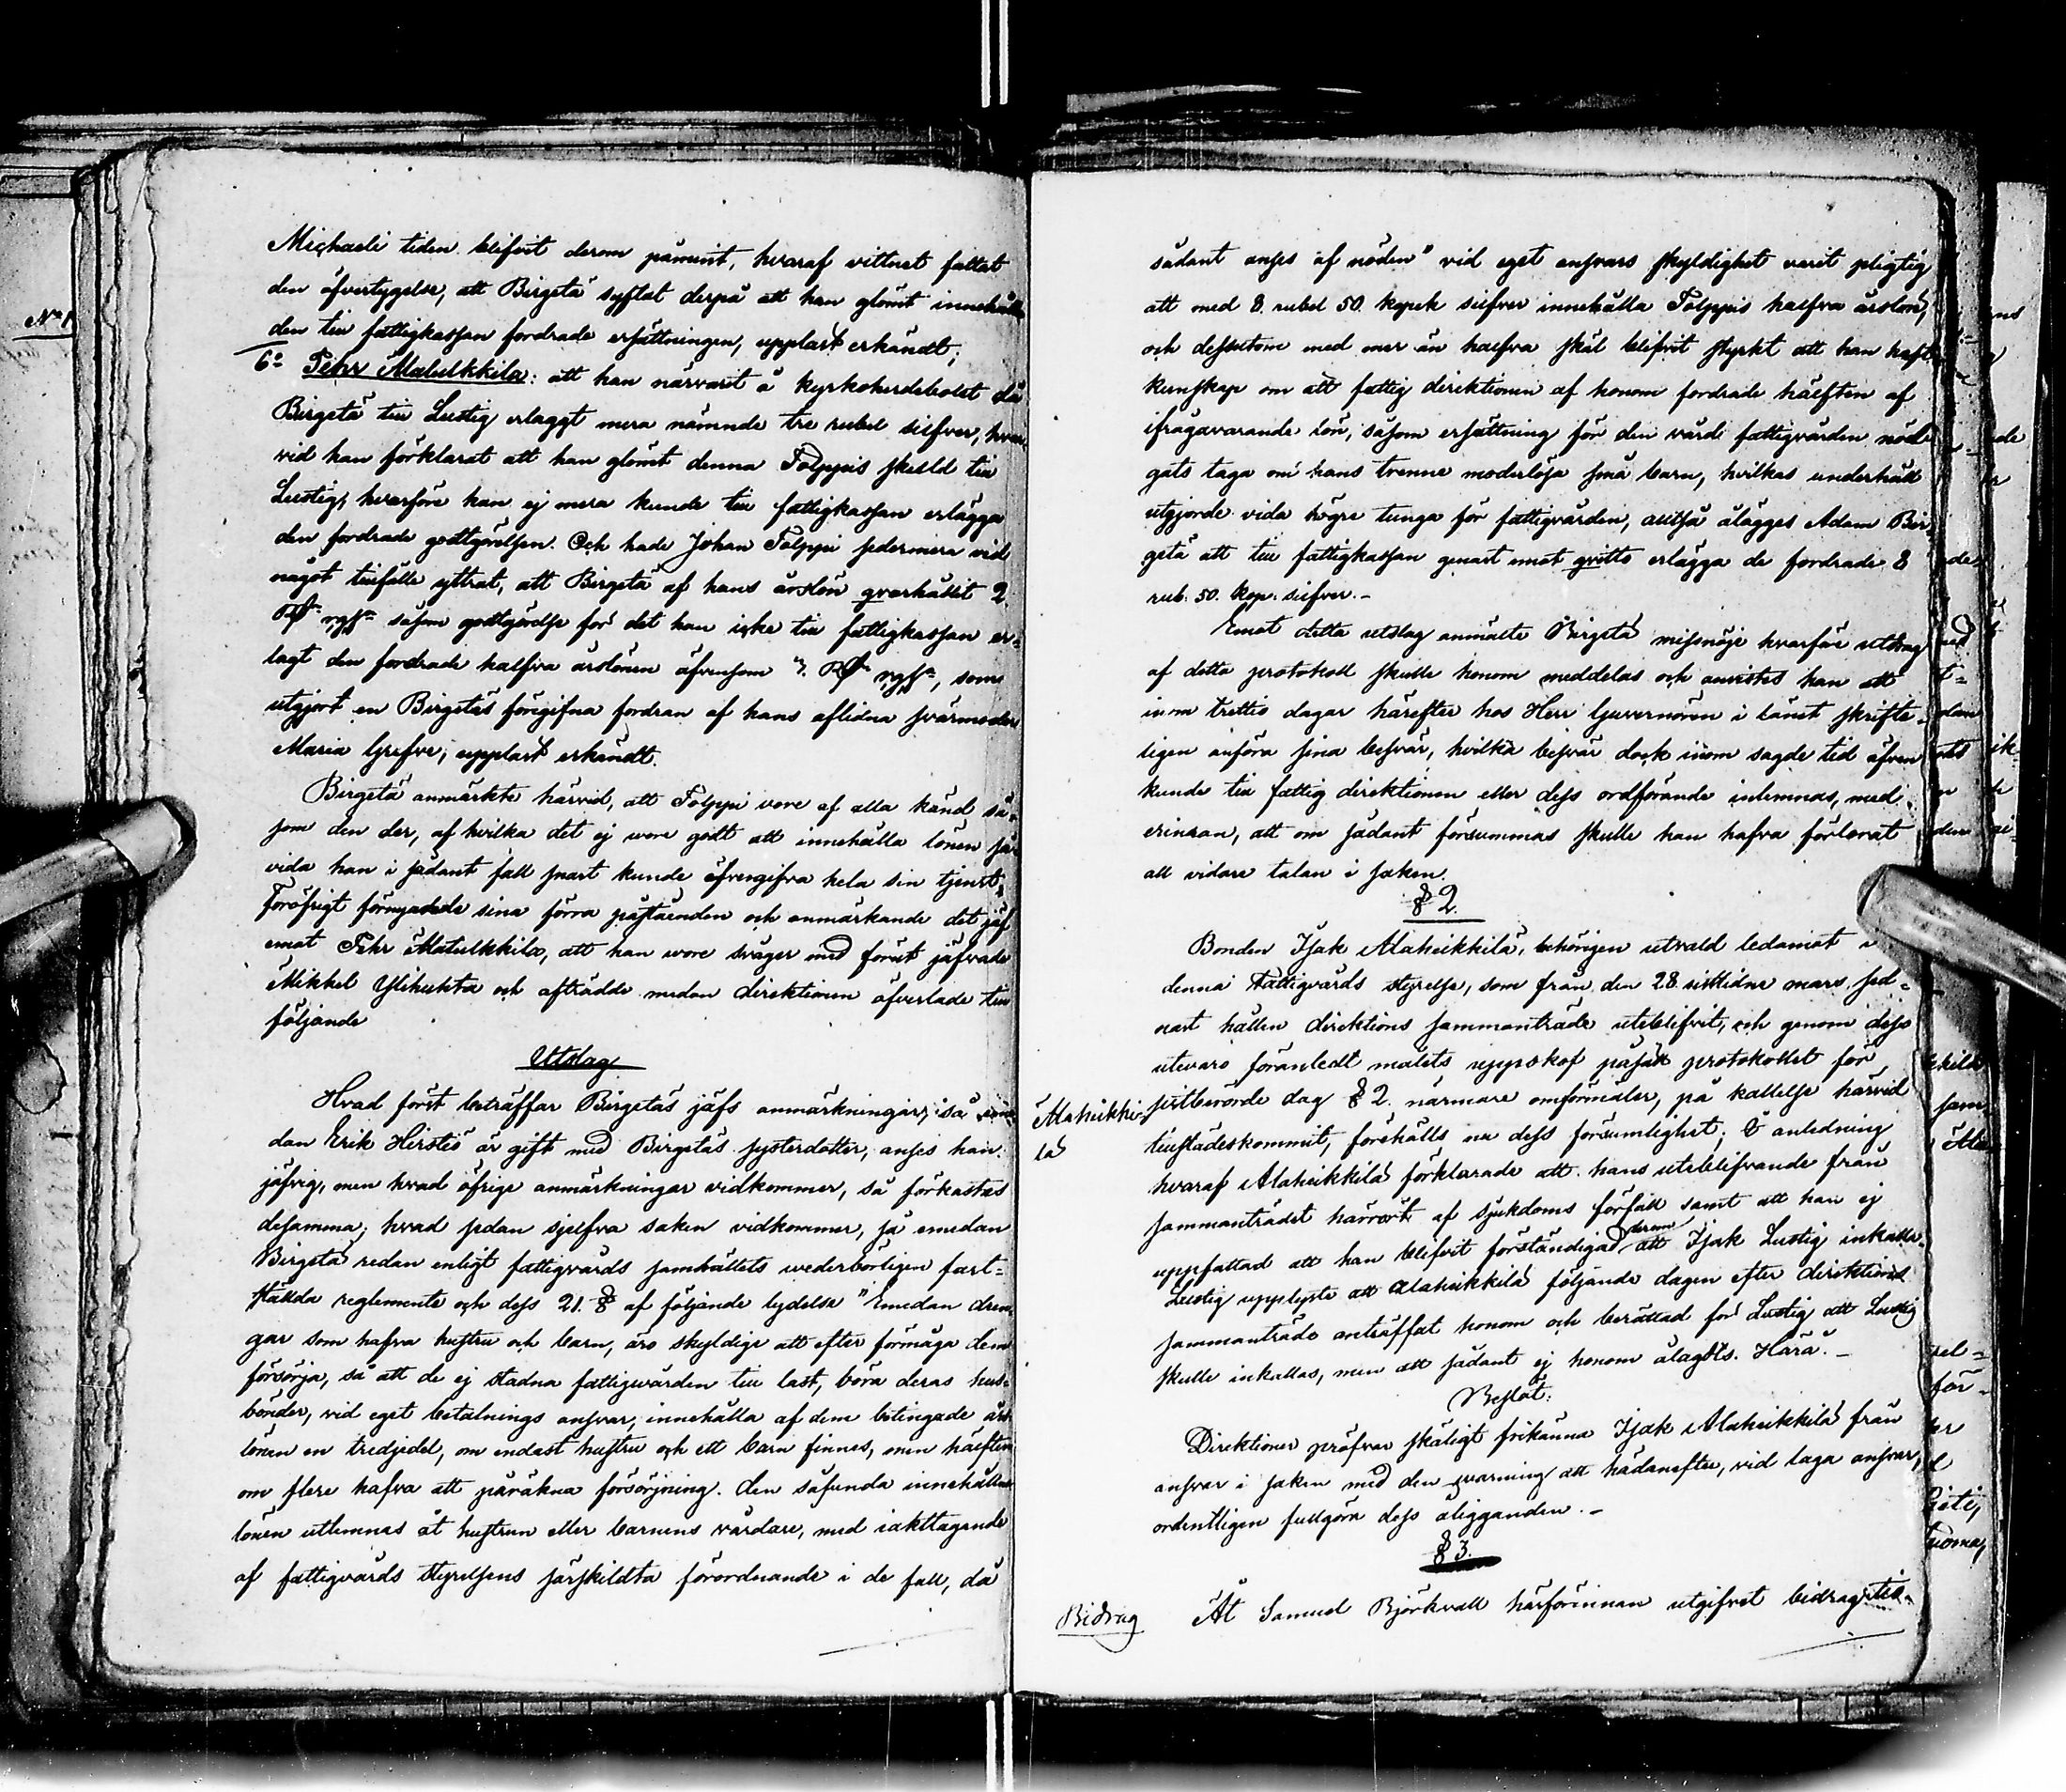 Michaeli tiden blifvit derom påmint, hvaraf vittnet fattat
den öfvertygelse, att Birgetä syftat derpå att han glömt innehålla
den till fattigkassan fordrade ersättningen, uppläst erkändt;
6o Pehr Matulkkila: att han närvarit å kyrkoherdebolet då
Birgetä till Lustig erlaggt mera nämnde tre rubel silfver, hvar-
vid han förklarat att han glömt denna Tolppis skuld till
Lustig, hvarföre han ej mera kunde till fattigkassan erlägga
den fordrade godtgörelsen. Och hade Johan Tolppi sedermera vid
något tillfälle yttrat, att Birgetä af hans årslön qvarhållit 2
Rd rgs såsom godtgörelse för det han icke till fattigkassan er-
lagt den fordrade halfva årslönen äfvensom 3. Rd rgs, som
utgjort en Birgetäs föregifna fordran af hans aflidna svärmoder
Maria Grefve; uppläst erkändt.
Birgetä anmärkte härvid, att Tolppi vore af alla känd så-
som den der, af hvilka det ej vore godt att innehålla lönen så-
vida han i sådant fall snart kunde öfvergifva hela sin tjenst,
Föröfrigt förnyadede sina förra påståenden och anmärkande det jäf
emot Pehr Matulkkila, att han vore svåger med förut jäfvade
Mikkel Ylihukka och afträdde medan direktionen öfverlade till
följande
Utslag
Hvad först beträffar Birgetäs jäfs anmärkningar, så eme-
dan Erik Hirstiö är gift med Birgetäs systerdotter, anses han
jäfvig, men hvad öfrige anmärkningar vidkommer, så förkastas
desamma; hvad sedan sjelfva saken vidkommer, så emedan
Birgetä redan enligt fattigvårds samhällets wederbörligen fast-
ställda reglemente och dess 21. § af följande lydelse "Emedan drän-
gar som hafva hustru och barn, äro skyldige att efter förmåga dem
försörja, så att de ej stadna fattigvården till last, böra deras hus-
bönder, vid eget betalnings ansvar, innehålla af dem betingade års-
lönen en tredjedel, om endast hustru och ett barn finnes, men hälften
om flere hafva att påräkna försörjning. Den såsunda innehållna
lönen utlemnas åt hustrun eller barnens vårdare, med iakttagande
af fattigvårds styrelsens särskildta förordnande i de fall, då
sådant anses af nöden" vid eget ansvars skyldighet varit pligtig
att med 8. rubel 50. kopek silfver innehålla Tolppis halfva årslön,
och dessutom med mer än halfva skäl blifvit styrkt att han haft
kunskap om att fattig direktionen af honom fordrade hälften af
ifrågavarande lön, såsom ersättning för den vård fattigvården nöd-
gats taga om hans trenne moderlösa små barn, hvilkas underhåll
utgjorde vida högre tunga för fattigvården, alltså ålägges Adam Bir-
getä att till fattigkassan genast emot qvitto erlägga de fordrade 8
rub: 50. kop: silfver.-
Emot detta utslag anmälte Birgetä missnöje hvarföre utdrag
af detta protokoll skulle honom meddelas och anvistes han att
inom trettio dagar härefter hos Herr Guvernören i länet skrifte-
ligen anföra sina besvär, hvilka besvär dock inom sagde tid äfven
kunde till fattig direktionen eller dess ordförande inlemnas, med
erinran, att om sådant försummas skulle han hafva förlorat
all vidare talan i saken.
§ 2.
Bonden Isak Alaheikkilä, behörigen utvald ledamot i
denna Fattigvårds styrelse, som från den 28 sistlidne mars sed-
nast hållen direktions sammanträde uteblifvit, och genom dess
utevaro föranledt målets uppskof på sätt protokollet för
Alaheikki-
lä
sistberörde dag § 2. närmare omförmäler, på kallelse härvid
tillstädeskommit, förehålls nu dess försumlighet; I anledning
hvaraf Alaheikkilä förklarade att hans uteblifvande från
sammanträdet härrört af sjukdoms förfall samt att han ej
uppfattad att han blifvit förständigad derom att Isak Lustig inkalla.
Lustig upplyste att Alaheikkilä följande dagen efter direktions
sammanträde anträffat honom och berättad för Lustig att Lustig
skulle inkallas, men att sådant ej honom ålagdts. Härå.-
Beslöt:
Direktionen pröfvar skäligt frikänna Isak Alaheikkilä från
ansvar i saken med den warning att hädanefter, vid laga ansvar,
ordentligen fullgöra dess åligganden.-
§ 3.
Bidrag
Åt Samuel Björkvall härförinnan utgifvet bidrag till